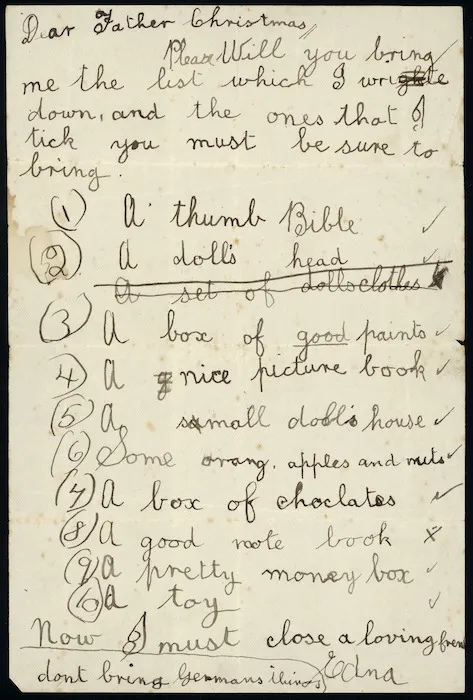 Dear Father Christmas
Please Will you bring
me the list which I write
down, and the ones that I
tick you must be sure to
bring.
(1) A thumb Bible ✓
(2) A doll's head ✓
A set of dolls clothes
(3) A box of good paints ✓
(4) A nice picture book ✓
(5) A small doll's house ✓
(6) Some orang, apples and nuts ✓
(7) A box of choclates ✓
(8) A good note book ✗
(9) A pretty money box ✓
(10) A toy ✓
Now I must close a loving
Edna
dont bring Germans things